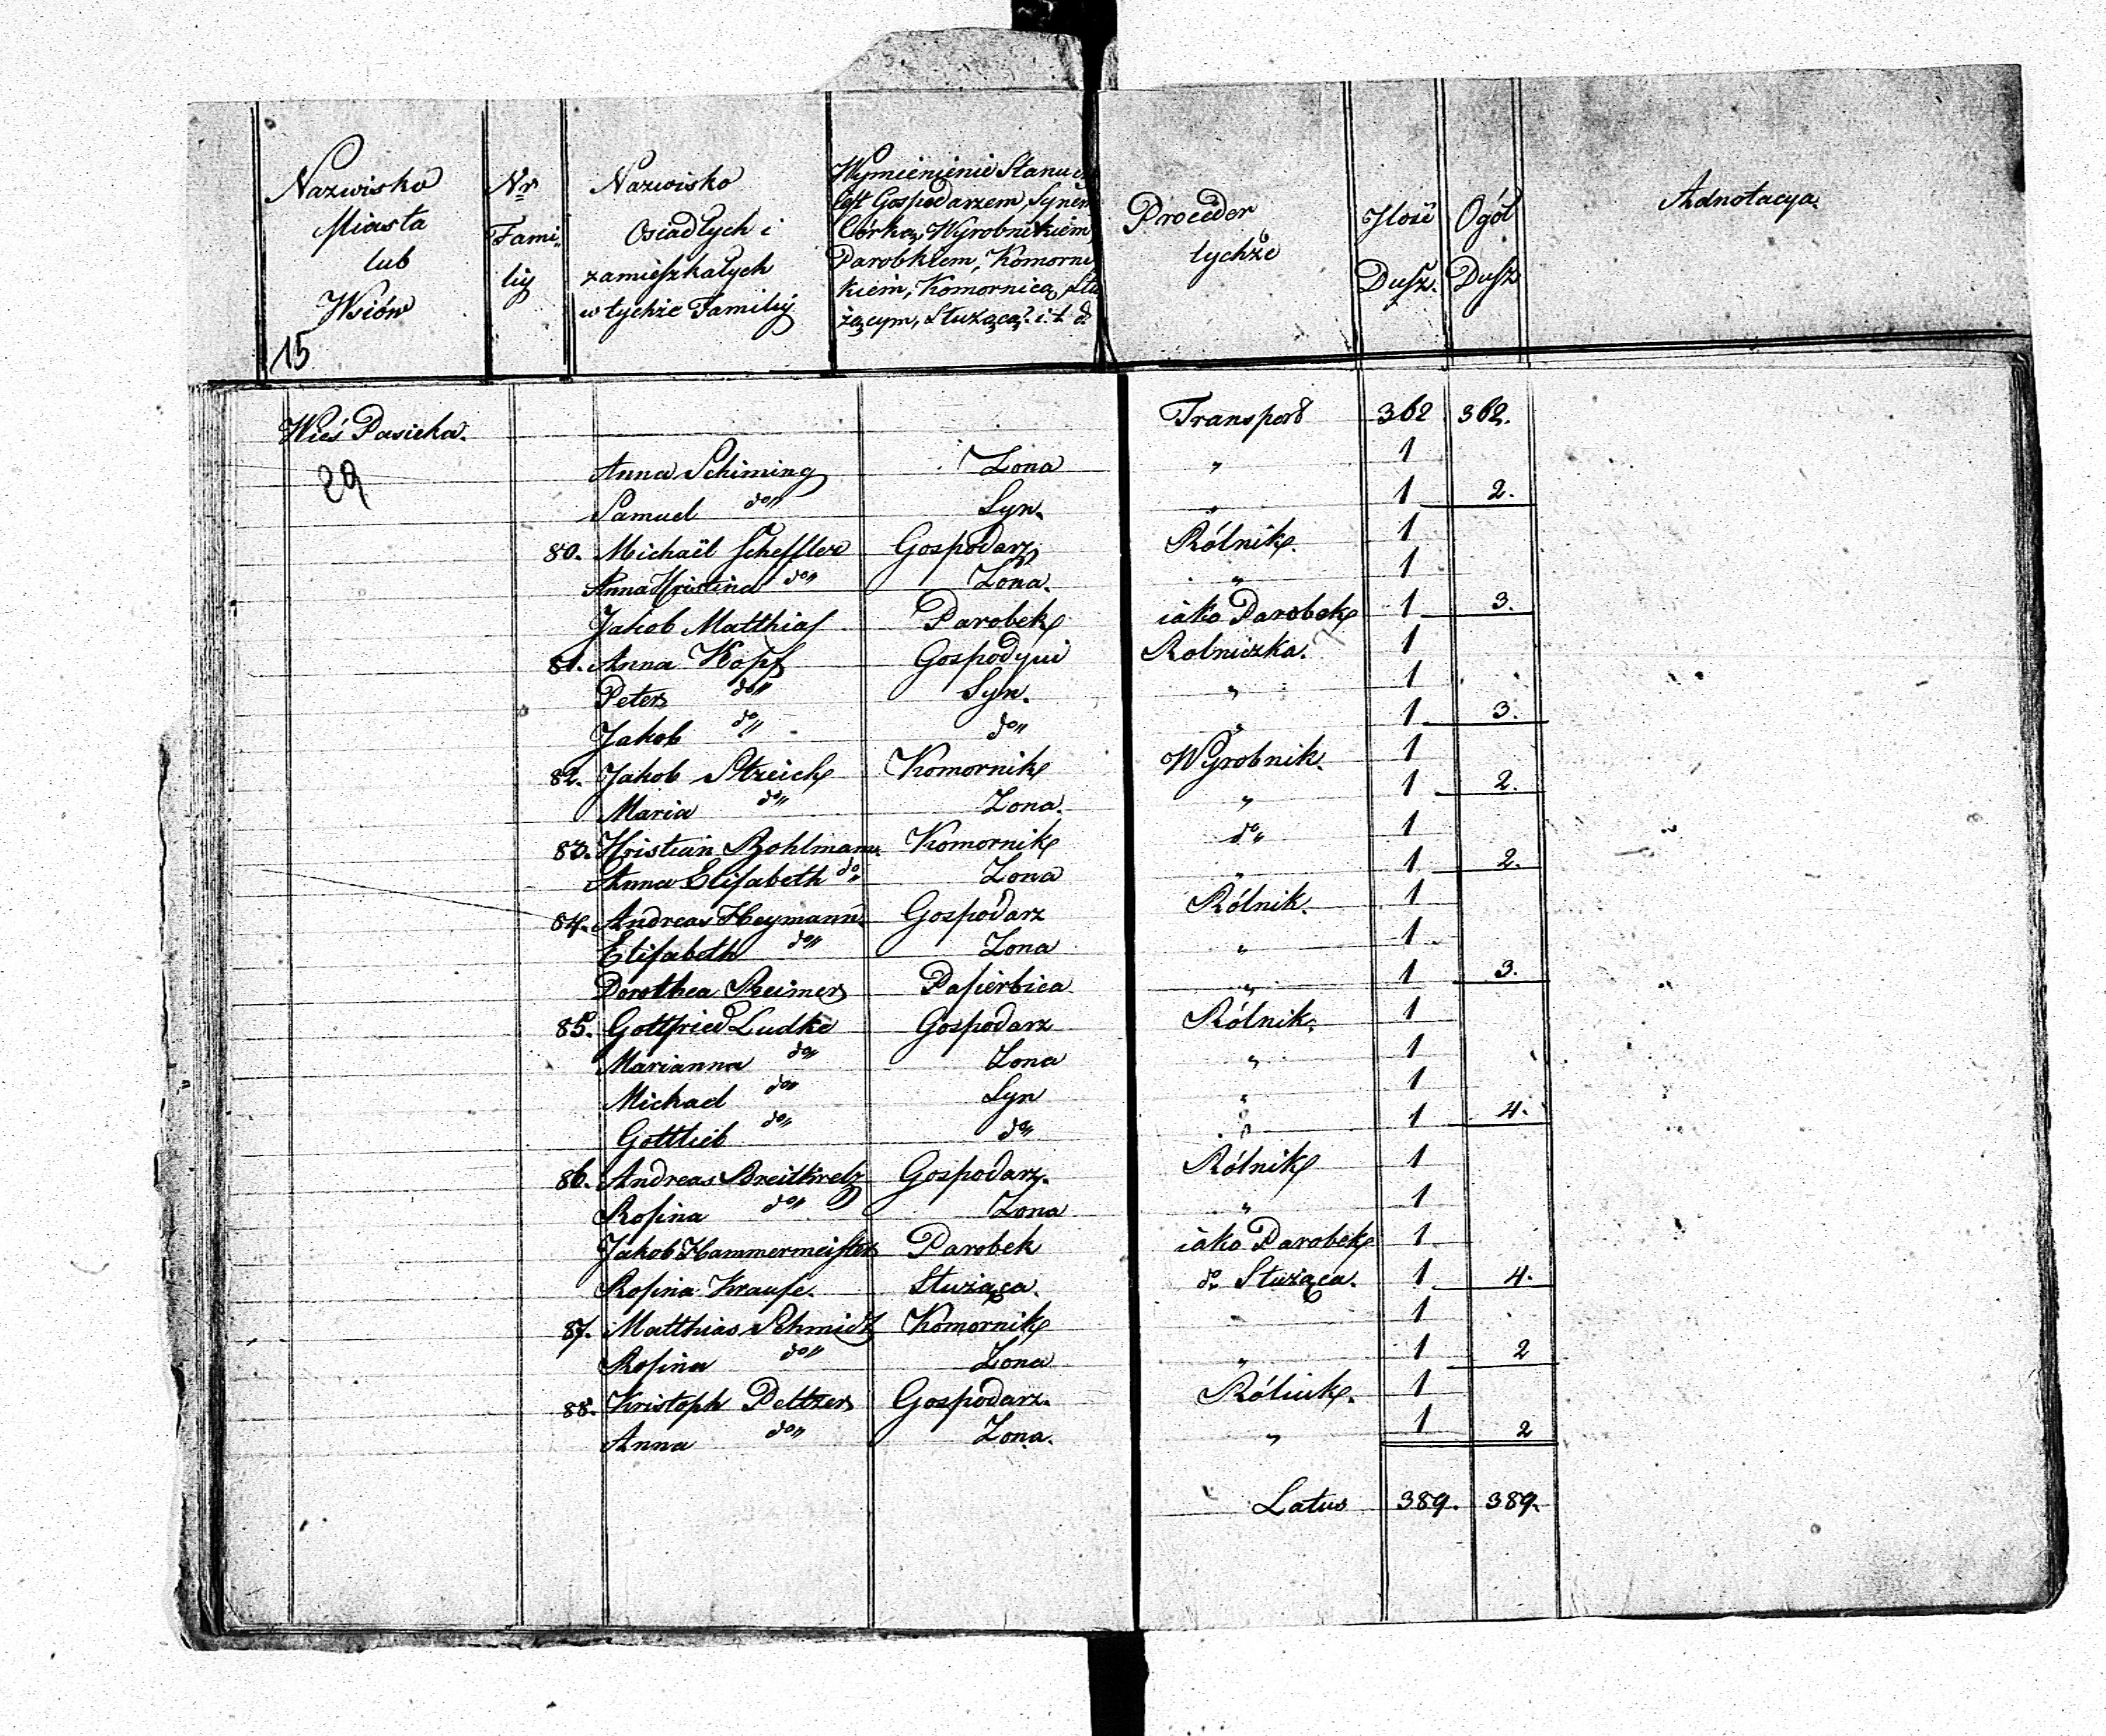 Nazwisko Miasta lub Wsiów
Nr Fami= liy
Nazwisko Osiadłych i zamieszkałych w tychże Familiy
Wymienienie Stanu
iest Gospodarzem, Synem
Córką, Wyrobnikiem,
Parobkiem, Komorni
kiem, Komornicą, Słu
żącym, Służącą? i. t. d.
Proceder tychże
Ilość Dusz.
Ogół Dusz
Adnotacya.
15
Wieś Pasieka. Transport 362 362.
29
Anna Schiming Zona " 1
Samuel do" Syn. " 1 2.
80. Michaël Scheffler Gospodarz Rólnik. 1
Anna Kristina do" Zona. " 1
Jakob Matthias Parobek iako Parobek 1 3.
81. Anna Kopf Gospodyni Rolniczka. 1
Peter do" Syn. " 1
Jakob do" do" " 1 3.
82. Jakob Streich Komornik Wyrobnik. 1
Maria do" Zona. " 1 2.
83. Kristian Bohlmann Komornik do" 1
Anna Elisabeth do" Zona " 1 2.
84. Andreas Heymann. Gospodarz Rólnik. 1
Elisabeth do" Zona " 1
Dorothea Reimer Pasierbica " 1 3.
85. Gottfried Ludke Gospodarz Rólnik. 1
Marianna do" Zona " 1
Michael do" Syn " 1
Gottlieb do" do" " 1 4.
86. Andreas Breitkretz Gospodarz. Rólnik 1
Rosina do" Zona " 1
Jakob Hammermeister Parobek iako Parobek 1
Rosina Krause. Służąca. do Służąca. 1 4.
87. Matthias Schmidt Komornik " 1
Rosina do" Zona " 1 2
88. Kristoph Peltzer Gospodarz. Rólnik. 1
Anna do" Zona. " 1 2
Latus 389. 389.